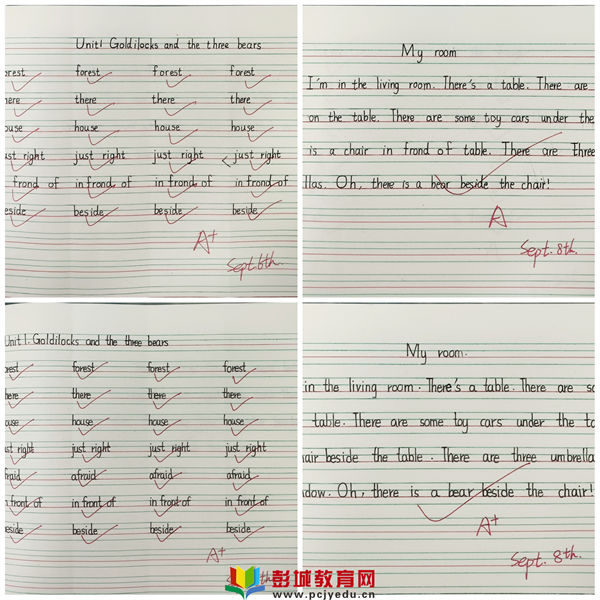 Unit1 Goldilocks and the three bears
orest forest forest forest
here there there there
ouse house house house
ust right just right just right just right
in frond of in frond of in frond of in frond of
eside beside beside beside
A+
Sept.6th.
My room
I'm in the living room. There's a table. There are
on the table. There are some toy cars under the
is a chair in frond of table. There are Three
llas. Oh, there is a bear beside the chair!
A
Sept. 8th.
Unit 1. Goldilocks and the three bears
orest forest forest forest
here there there there
ouse house house house
ust right just right just right just right
afraid afraid afraid afraid
in front of in front of in front of in front of
beside beside beside beside
A+
th
My room.
in the living room. There's a table. There are so
table. There are some toy cars under the ta
hair beside the table. There are three umbrella
dow. Oh, there is a bear beside the chair!
A+
Sept. 8th.
彭城教育网
www.pcjyedu.cn